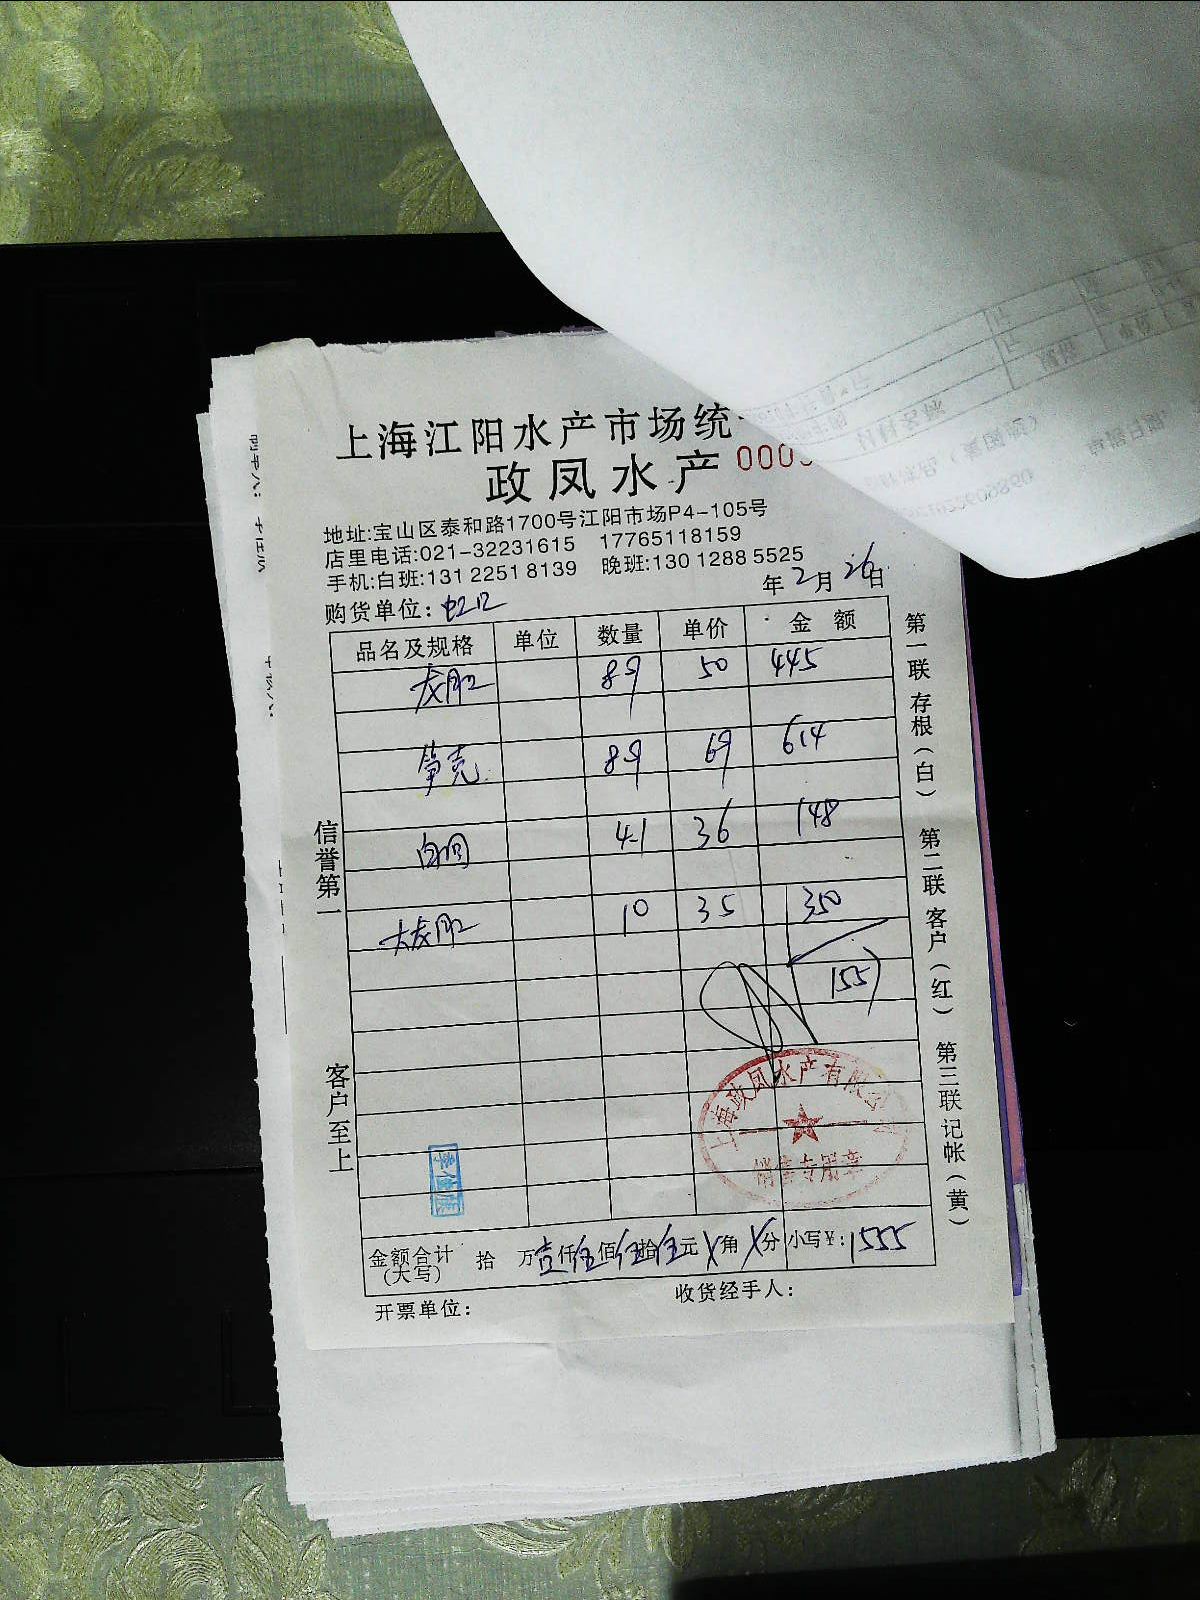 上海江阳水产市场统
政凤水产 000
地址:宝山区泰和路1700号江阳市场P4-105号
店里电话:021-32231615 17765118159
手机:白班:131 2251 8139 晚班:130 1288 5525
购货单位:虹口 年2月26日
品名及规格 单位 数量 单价 金额
龙胆 89 50 445
笋壳 89 69 614
4-1 36 148
大龙胆 10 35 350
155
信誉第一
客户至上
第一联存根(白) 第二联客户(红) 第三联记帐(黄)
上海政凤水产有限公司
销售专用章
金额合计(大写) 拾 万壹仟伍佰伍拾伍元X角X分 小写¥:1555
开票单位: 收货经手人: